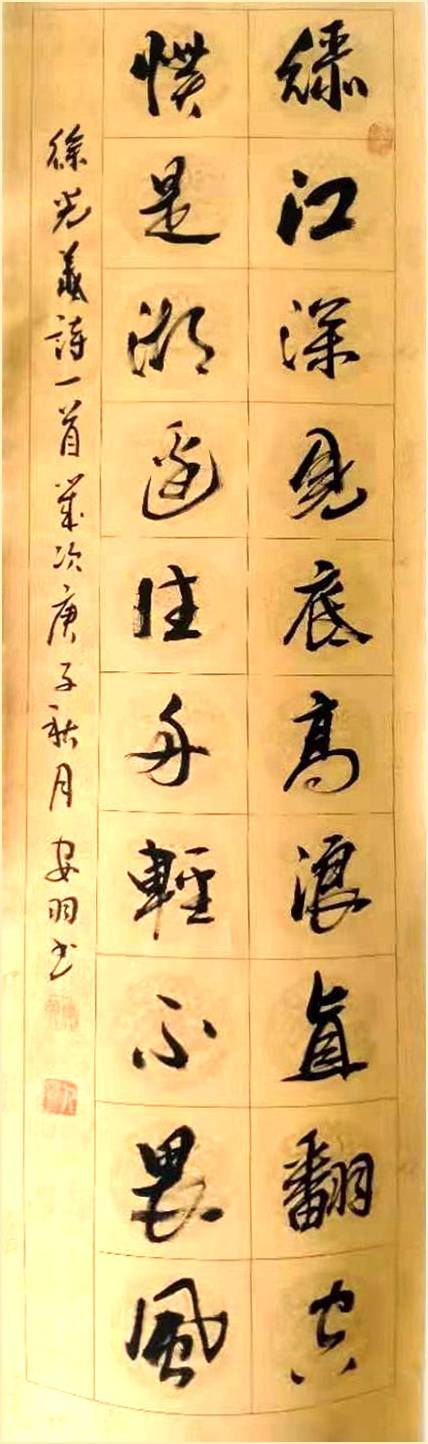 綠江深見底高浪直翻空
慣是湖邊住舟輕不畏風
徐光羲詩一首歲次庚子秋月安羽书